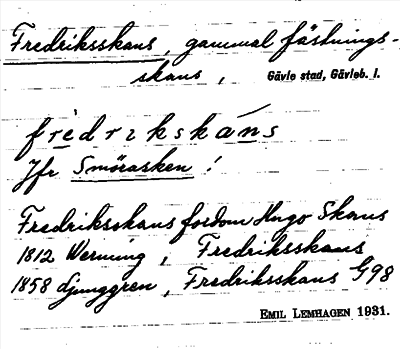 Fredriksskans, gammal fästnings-
skans, Gävle stad, Gävleb. l.
frèdrıkskáns
Jfr Smörasken!
Fredriksskans fordom Hugo Skans
1812 Werming, Fredriksskans
1858 Ljunggren, Fredriksskans G98
EMIL LEMHAGEN 1931.